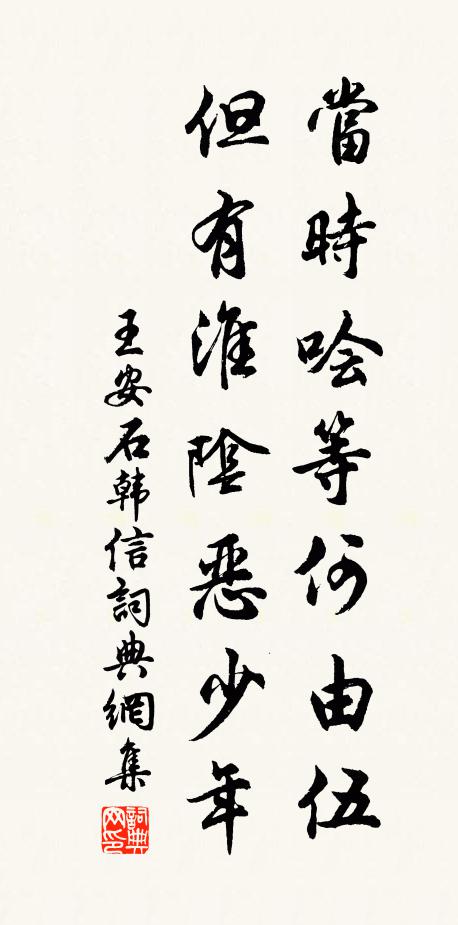 當時哙等何由伍
但有淮陰惡少年
王安石韩信詞典網集
詞典
网印